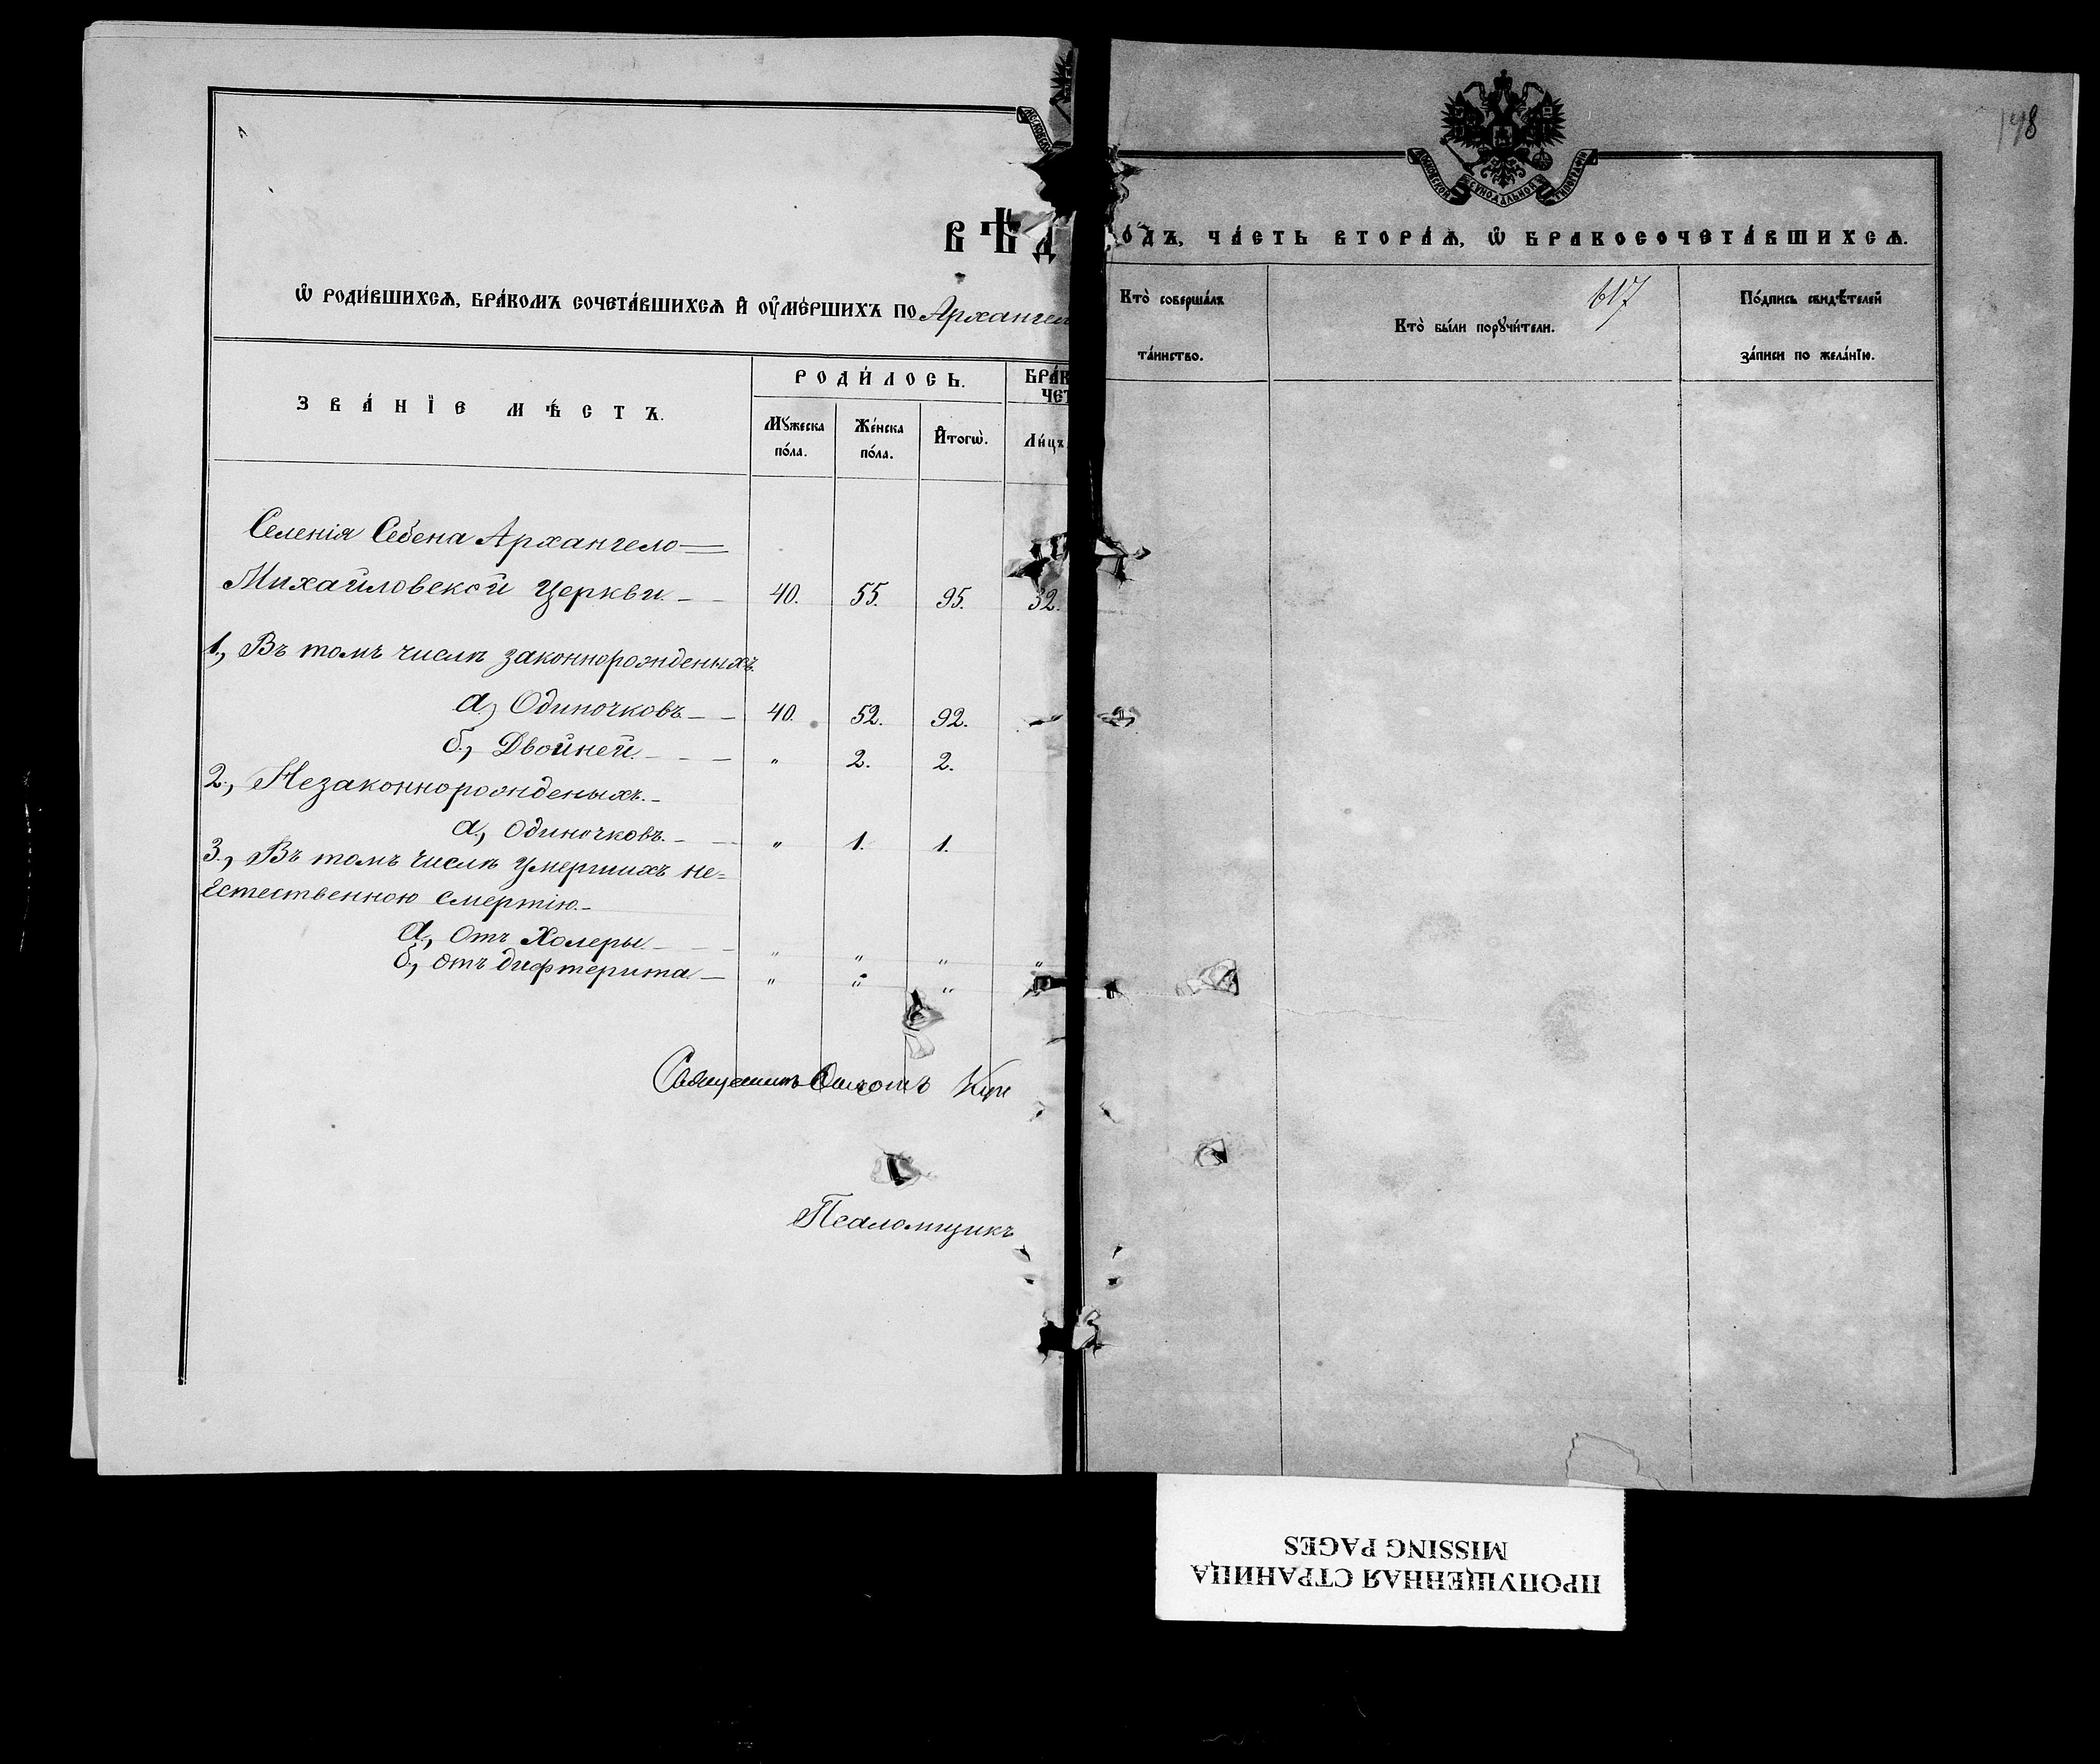 ВѢД
Ѡ РОДИ́ВШИХСѦ, БРА́КОМЪ СОЧЕТА́ВШИХСѦ И҆ ОУ҆МЕ́РШИХЪ ПО Архангел
ЗВА́НЇЕ МѢ́СТЪ.
РОДИ́ЛОСЬ.
БРАК
ЧЕТ
Мꙋжеска по́ла.
Же́нска по́ла.
И҆того̀.
Ли́цъ
Селенія Себена Архангело=
Михайловской Церкви. — 40. 55. 95. 32.
1., Въ томъ числѣ законнорожденыхъ.
а., Одиночковъ — 40. 52. 92.
б., Двойней. — " 2. 2.
2., Незаконнорожденыхъ. —
а., Одиночковъ. — " 1. 1.
3., Въ томъ числѣ умершихъ не=
естественною смертію. —
а., Отъ Холеры — " " " "
б., отъ дифтерита — " " "
Священникъ
Псаломщикъ
МОСКОВСКОЙ СѴНОДАЛЬНОЙ ТИПОГРАФІИ
178
О́ДЪ, ЧА́СТЬ ВТОРА́Ѧ, Ѡ БРАКОСОЧЕТА́ВШИХСѦ.
617
Кто̀ соверша́лъ
та́инство.
Кто̀ бы́ли порꙋчи́тели.
По́дпись свидѣ́телей
за́писи по жела́нїю.
ПРОПУЩЕННАЯ СТРАНИЦА
MISSING PAGES